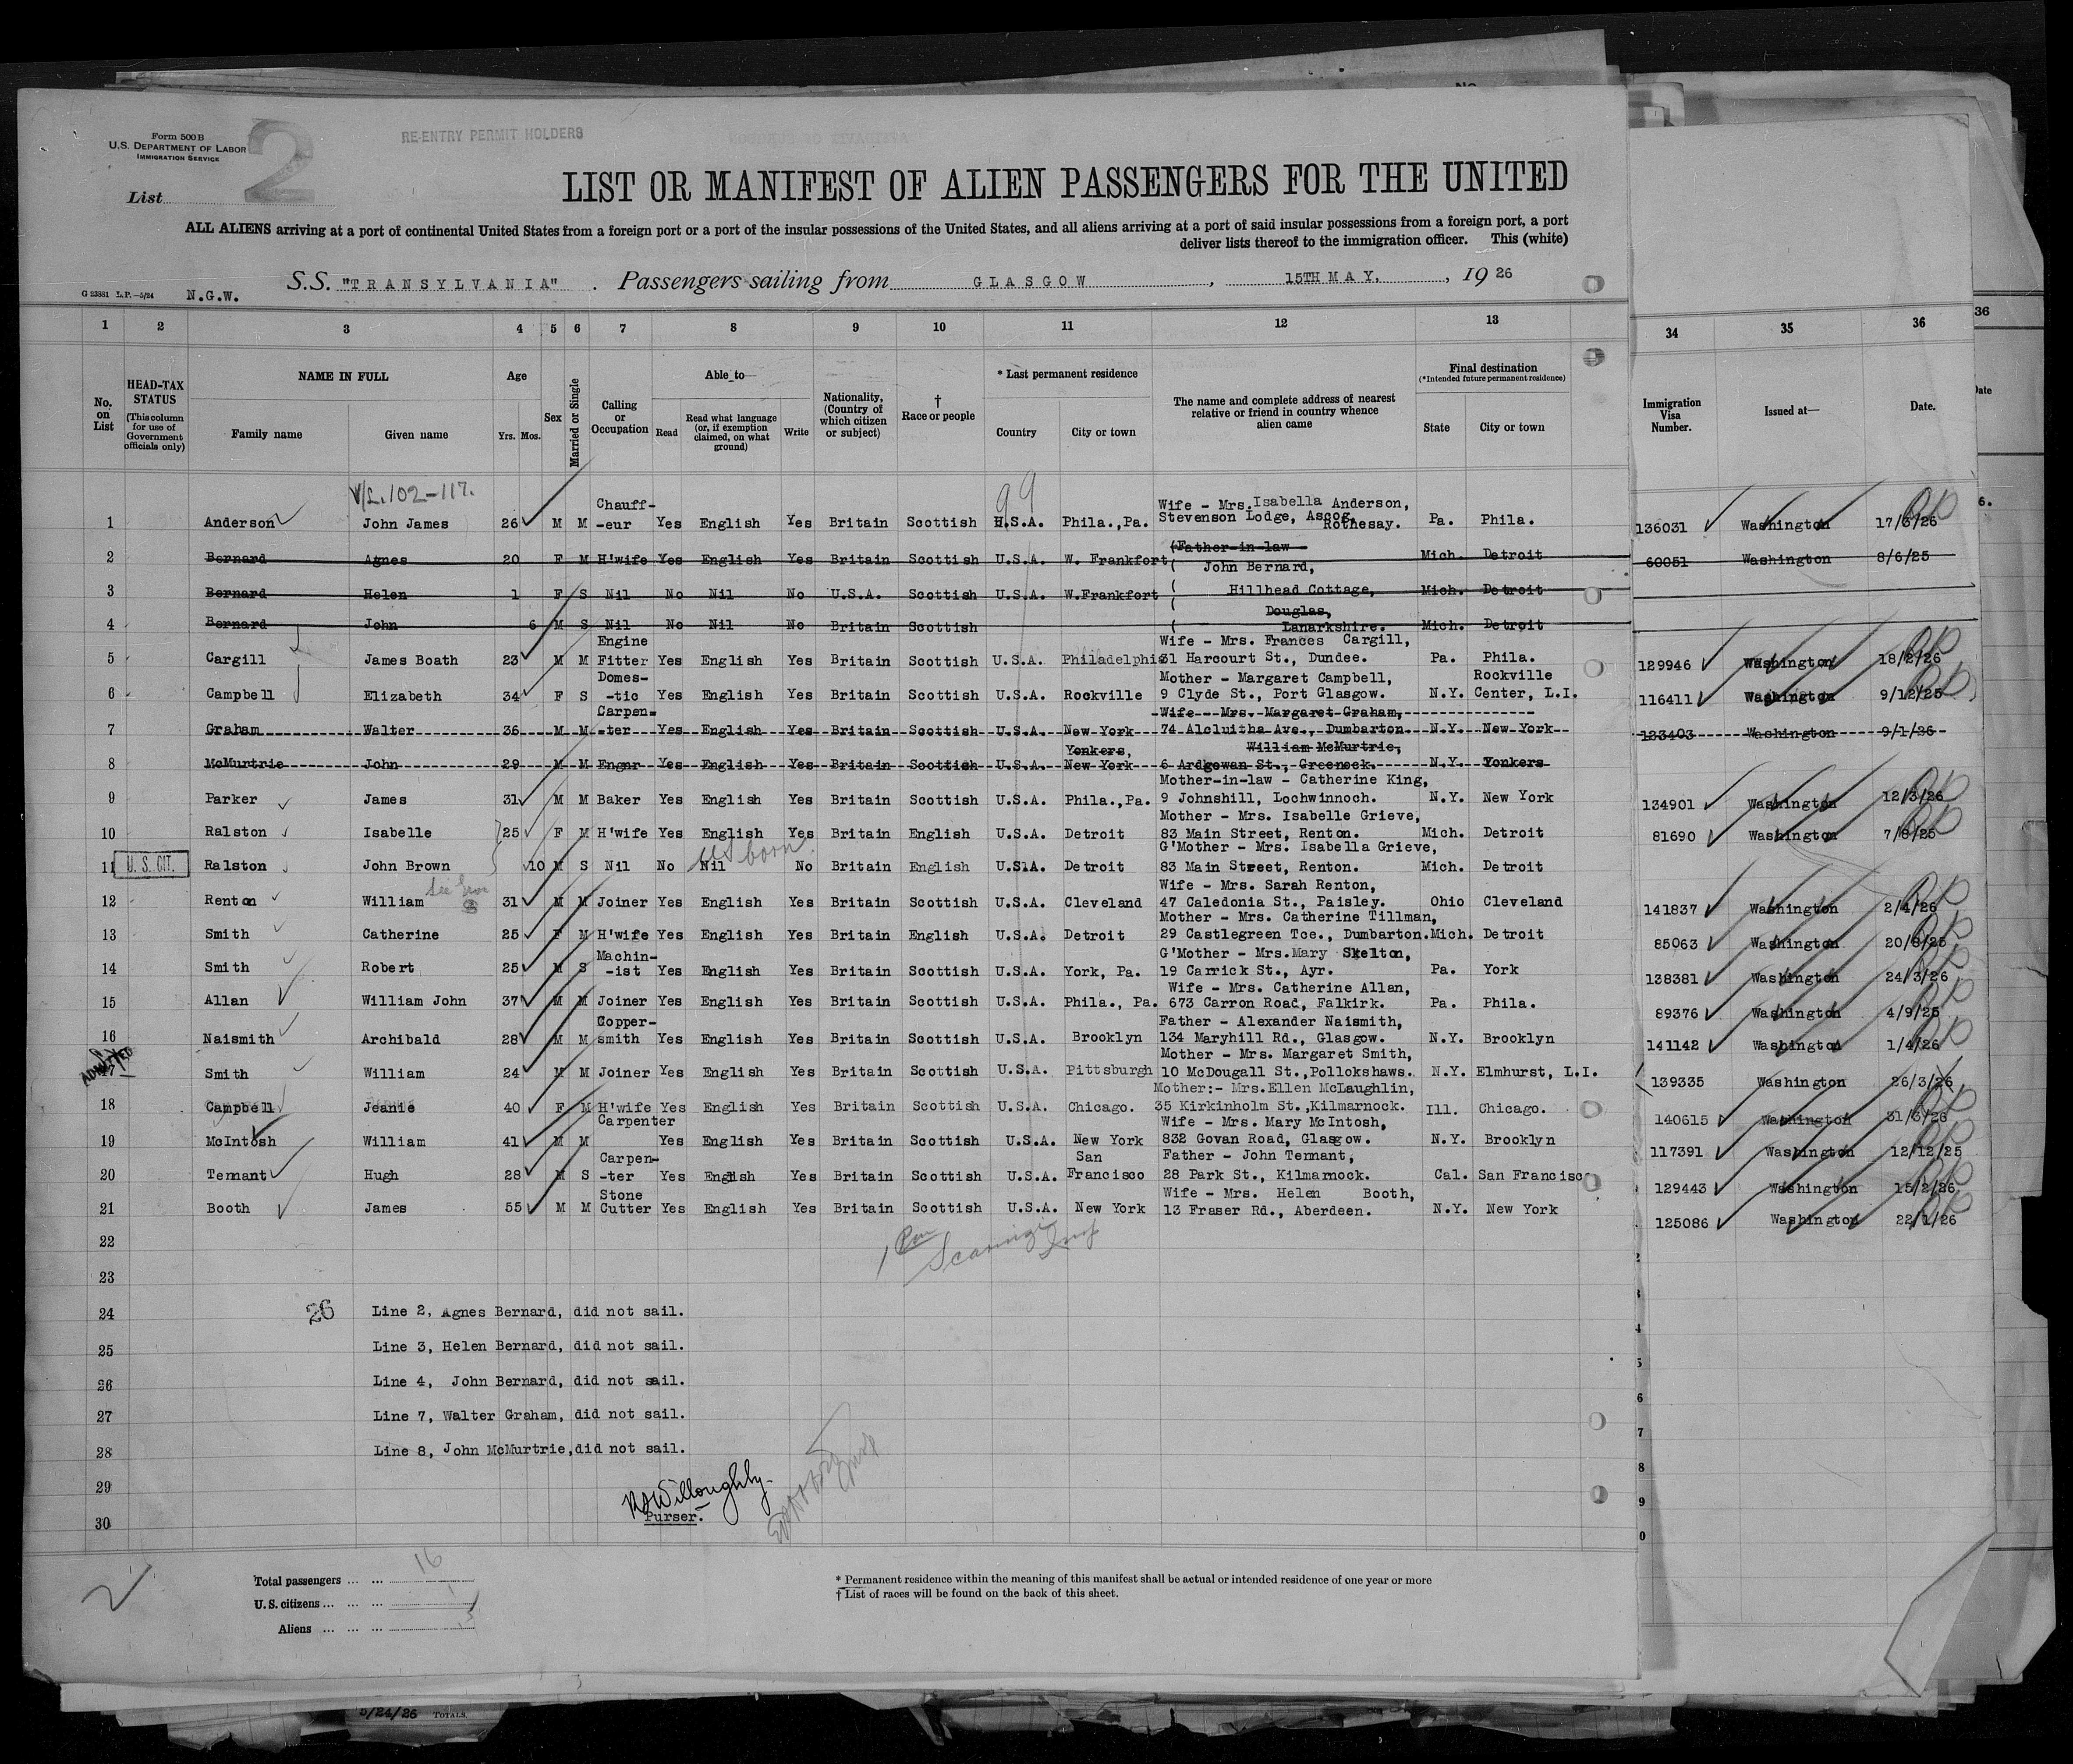 Form 500B
U.S. DEPARTMENT OF LABOR
IMMIGRATION SERVICE
2
RE-ENTRY PERMIT HOLDERS
List
LIST OR MANIFEST OF ALIEN PASSENGERS FOR THE UNITED
ALL ALIENS arriving at a port of continental United States from a foreign port or a port of the insular possessions of the United States, and all aliens arriving at a port of said insular possessions from a foreign port, a port
deliver lists thereof to the immigration officer. This (white)
G 23881 L.P.—5/24 N.G.W. S.S. "TRANSYLVANIA". Passengers sailing from GLASGOW, 15TH MAY., 1926
1 2 3 4 5 6 7 8 9 10 11 12 13 34 35 36 36
No. on List
HEAD-TAX STATUS
(This column for use of Government officials only)
NAME IN FULL
Family name Given name
Age
Yrs. Mos.
Sex
Married or Single
Calling or Occupation
Able to—
Read
Read what language (or, if exemption claimed, on what ground)
Write
Nationality, (Country of which citizen or subject)
† Race or people
* Last permanent residence
Country City or town
The name and complete address of nearest relative or friend in country whence alien came
Final destination
(*Intended future permanent residence)
State City or town
Immigration Visa Number.
Issued at—
Date.
Date
V/L. 102-117.
99
1 Anderson John James 26 M M Chauff-eur Yes English Yes Britain Scottish U.S.A. Phila.,Pa. Wife - Mrs. Isabella Anderson, Stevenson Lodge, Ascog, Rothesay. Pa. Phila. 136031 Washington 17/3/26
2 Bernard Agnes 20 F M H'wife Yes English Yes Britain Scottish U.S.A. W. Frankfort (Father-in-law - John Bernard, Mich. Detroit 60051 Washington 8/6/25
3 Bernard Helen 1 F S Nil No Nil No U.S.A. Scottish U.S.A. W.Frankfort ( Hillhead Cottage, Mich. Detroit
4 Bernard John 6 M S Nil No Nil No Britain Scottish ( Douglas, Lanarkshire. Mich. Detroit
5 Cargill James Boath 23 M M Engine Fitter Yes English Yes Britain Scottish U.S.A. Philadelphia Wife - Mrs. Frances Cargill, 31 Harcourt St., Dundee. Pa. Phila. 129946 Washington 18/2/26
6 Campbell Elizabeth 34 F S Domes-tic Yes English Yes Britain Scottish U.S.A. Rockville Mother - Margaret Campbell, 9 Clyde St., Port Glasgow. N.Y. Rockville Center, L.I. 116411 Washington 9/12/25
7 Graham Walter 36 M M Carpen-ter Yes English Yes Britain Scottish U.S.A. New York Wife - Mrs. Margaret Graham, 74 Alcluitha Ave., Dumbarton. N.Y. New York 123403 Washington 9/1/26
8 McMurtrie John 29 M M Engnr Yes English Yes Britain Scottish U.S.A. Yonkers, New York William McMurtrie, 6 Ardgowan St., Greenock. N.Y. Yonkers
9 Parker James 31 M M Baker Yes English Yes Britain Scottish U.S.A. Phila.,Pa. Mother-in-law - Catherine King, 9 Johnshill, Lochwinnoch. N.Y. New York 134901 Washington 12/3/26
10 Ralston Isabelle 25 F M H'wife Yes English Yes Britain English U.S.A. Detroit Mother - Mrs. Isabelle Grieve, 83 Main Street, Renton. Mich. Detroit 81690 Washington 7/8/25
US born
11 U. S. CIT. Ralston John Brown 10 M S Nil No Nil No Britain English U.S.A. Detroit G'Mother - Mrs. Isabella Grieve, 83 Main Street, Renton. Mich. Detroit
12 Renton William 31 M M Joiner Yes English Yes Britain Scottish U.S.A. Cleveland Wife - Mrs. Sarah Renton, 47 Caledonia St., Paisley. Ohio Cleveland 141837 Washington 2/4/26
13 Smith Catherine 25 F M H'wife Yes English Yes Britain English U.S.A. Detroit Mother - Mrs. Catherine Tillman, 29 Castlegreen Tce., Dumbarton. Mich. Detroit 85063 Washington 20/8/25
14 Smith Robert 25 M S Machin-ist Yes English Yes Britain Scottish U.S.A. York, Pa. G'Mother - Mrs. Mary Skelton, 19 Carrick St., Ayr. Pa. York 138381 Washington 24/3/26
15 Allan William John 37 M M Joiner Yes English Yes Britain Scottish U.S.A. Phila., Pa. Wife - Mrs. Catherine Allan, 673 Carron Road, Falkirk. Pa. Phila. 89376 Washington 4/9/25
16 Naismith Archibald 28 M M Copper-smith Yes English Yes Britain Scottish U.S.A. Brooklyn Father - Alexander Naismith, 134 Maryhill Rd., Glasgow. N.Y. Brooklyn 141142 Washington 1/4/26
ADMITTED
17 Smith William 24 M M Joiner Yes English Yes Britain Scottish U.S.A. Pittsburgh Mother - Mrs. Margaret Smith, 10 McDougall St.,Pollokshaws. N.Y. Elmhurst, L.I. 139335 Washington 26/3/26
18 Campbell Jeanie 40 F M H'wife Yes English Yes Britain Scottish U.S.A. Chicago. Mother:- Mrs.Ellen McLaughlin, 35 Kirkinholm St.,Kilmarnock. Ill. Chicago. 140615 Washington 31/3/26
19 McIntosh William 41 M M Carpenter Yes English Yes Britain Scottish U.S.A. New York Wife - Mrs. Mary McIntosh, 832 Govan Road, Glasgow. N.Y. Brooklyn 117391 Washington 12/12/25
20 Tennant Hugh 28 M S Carpen-ter Yes English Yes Britain Scottish U.S.A. San Francisco Father - John Tennant, 28 Park St., Kilmarnock. Cal. San Francisco 129443 Washington 15/2/26
21 Booth James 55 M M Stone Cutter Yes English Yes Britain Scottish U.S.A. New York Wife - Mrs. Helen Booth, 13 Fraser Rd., Aberdeen. N.Y. New York 125086 Washington 22/1/26
22
23
24 26 Line 2, Agnes Bernard, did not sail.
25 Line 3, Helen Bernard, did not sail.
26 Line 4, John Bernard, did not sail.
27 Line 7, Walter Graham, did not sail.
28 Line 8, John McMurtrie,did not sail.
29 Willoughby
30 Purser.
Total passengers ... ... 16
U.S. citizens ... ... ... 1
Aliens ... ... ...
* Permanent residence within the meaning of this manifest shall be actual or intended residence of one year or more
† List of races will be found on the back of this sheet.
5/24/26 TOTALS.